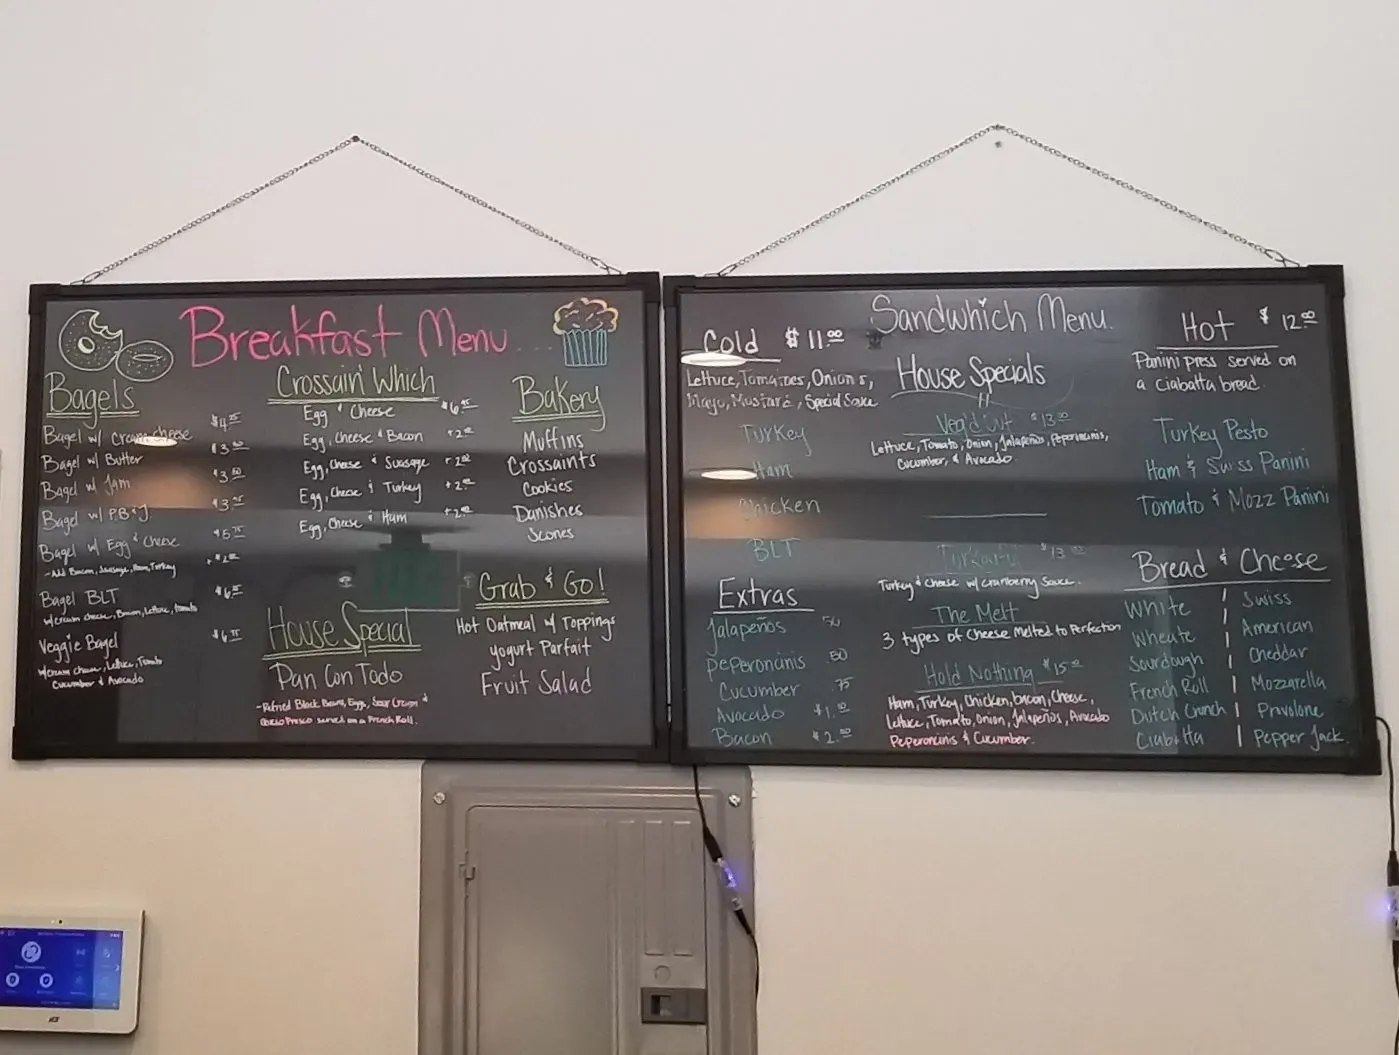 Breakfast Menu
Bagels
Bagel w/ Cream cheese $4.25
Bagel w/ Butter
Bagel w/ Jam
Bagel w/ P.B & J.
Bagel w/ Egg & Cheese
-Add Bacon, Sausage, Ham, Turkey
Bagel BLT
w/cream cheese, Bacon, Lettuce, tomato
Veggie Bagel
w/cream cheese, Lettuce, Tomato
Cucumber & Avocado
Crossain' Which
Egg & Cheese
Egg, Cheese & Bacon + 2.00
Egg, Cheese & Suasage + 2.00
Egg, Cheese & Turkey + 2.00
Egg, Cheese & Ham + 2.00
House Special
Pan Con Todo
-Refried Black Beans, Eggs, Sour Cream &
Queso Fresco served on a French Roll.
Bakery
Muffins
Crossaints
Cookies
Danishes
Scones
Grab & Go!
Hot Oatmeal w/ Toppings
yogurt Parfait
Fruit Salad
Sandwhich Menu.
Cold $11.00
Lettuce, Tomatoes, Onions,
Mayo, Mustard, Special Sauce
Turkey
Ham
Chicken
BLT
Extras
Jalapeños .50
Peperoncinis .50
Cucumber .75
Avocado $1.00
Bacon $2.00
House Specials
Veg'd out $13.00
Lettuce, Tomato, Onion, Jalapeños, Peperoncinis,
Cucumber, & Avocado.
$13.00
Turkey & Cheese w/ Cranberry Sauce.
The Melt
3 types of Cheese Melted to Perfection
Hold Nothing $15.00
Ham, Turkey, Chicken, bacon, Cheese,
Lettuce, Tomato, Onion, Jalapeños, Avocado
Peperoncinis & Cucumber.
Hot $12.00
Panini press served on
a Ciabatta bread.
Turkey Pesto
Ham & Swiss Panini
Tomato & Mozz Panini
Bread & Cheese
White | Swiss
Wheate American
Sourdough Cheddar
French Roll | Mozzarella
Dutch Crunch | Provolone
Ciabatta | Pepper Jack.